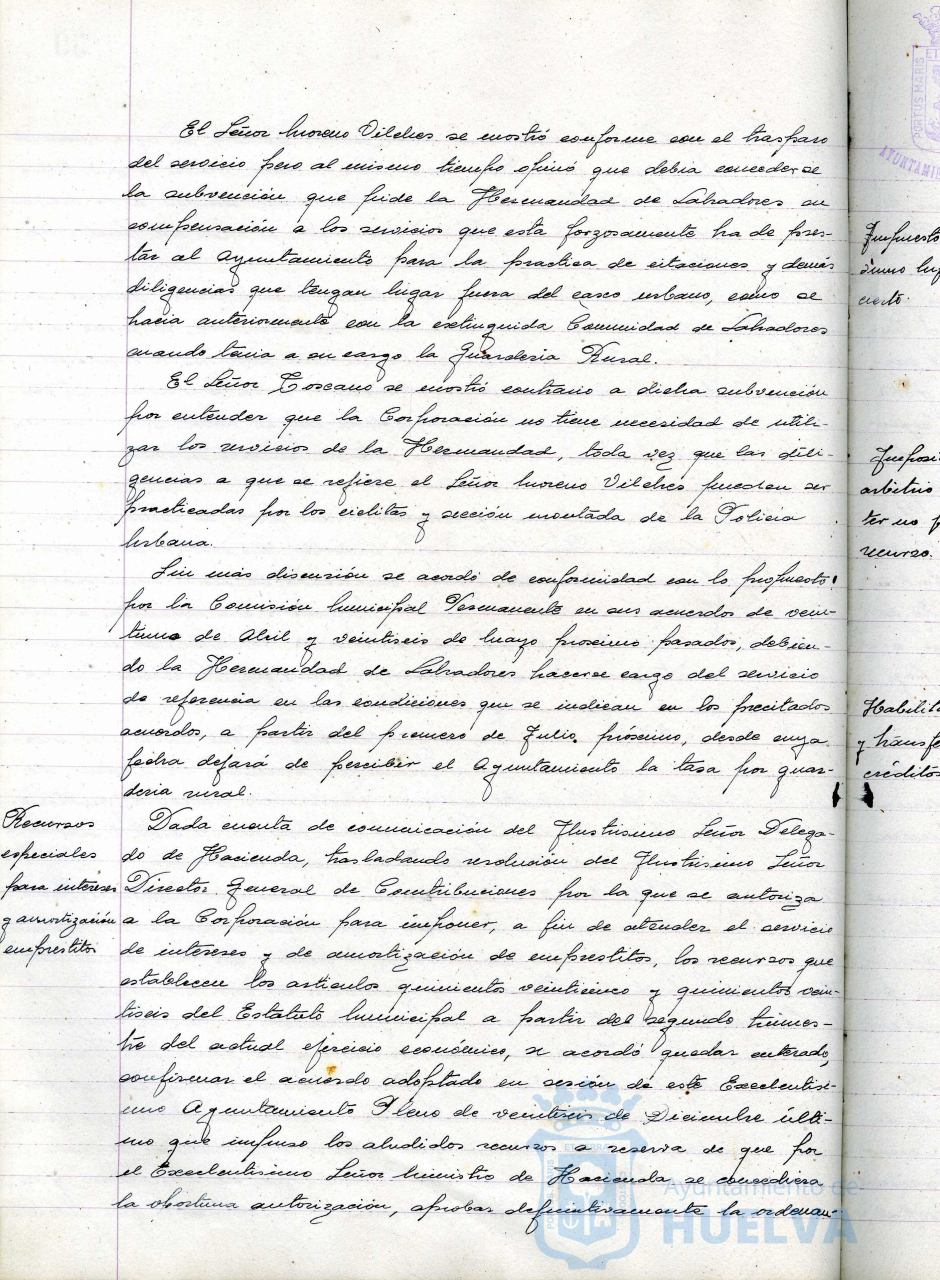 El Señor Moreno Vilches se mostró conforme con el traspaso
del servicio pero al mismo tiempo opinó que debia concederse
la subvención que pide la Hermandad de Labradores en
compensación a los servicios que esta forzosamente ha de pres-
tar al Ayuntamiento para la practica de citaciones y demás
diligencias que tengan lugar fuera del casco urbano, como se
hacia anteriormente con la extinguida Comunidad de Labradores
cuando tenia a su cargo la Guarderia Rural.
El Señor Toscano se mostró contrario a dicha subvención
por entender que la Corporación no tiene necesidad de utili-
zar los servicios de la Hermandad, toda vez que las dili-
gencias a que se refiere el Señor Moreno Vilches pueden ser
practicadas por los ciclistas y sección montada de la Policia
Urbana.
Sin más discusión se acordó de conformidad con lo propuesto
por la Comisión Municipal Permanente en sus acuerdos de vein-
tiuno de Abril y veintiseis de Mayo proximo pasados, debien-
do la Hermandad de Labradores hacerse cargo del servicio
de referencia en las condiciones que se indican en los precitados
acuerdos, a partir del primero de Julio próximo, desde cuya
fecha dejará de percibir el Ayuntamiento la tasa por guar-
deria rural.
Recursos
especiales
para intereses
y amortización
emprestitos
Dada cuenta de comunicación del Ilustrisimo Señor Delega-
do de Hacienda, trasladando resolución del Ilustrisimo Señor
Director General de Contribuciones por la que se autoriza
a la Corporación para imponer, a fin de atender el servicio
de intereses y de amortización de emprestitos, los recursos que
establecen los articulos quinientos veinticinco y quinientos vein-
tiseis del Estatuto Municipal a partir del segundo trimes-
tre del actual ejercicio económico, se acordó quedar enterado,
confirmar el acuerdo adoptado en sesión de este Excelentisi-
mo Ayuntamiento Pleno de veintiseis de Diciembre últi-
mo que impuso los aludidos recursos a reserva de que por
el Excelentisimo Señor Ministro de Hacienda se concediera
la oportuna autorización, aprobar definitivamente la ordenan-
Ayuntamiento de
HUELVA
PORTUS MARIS
Impuesto
cierto.
arbitrio
recurso.
y transfe
créditos